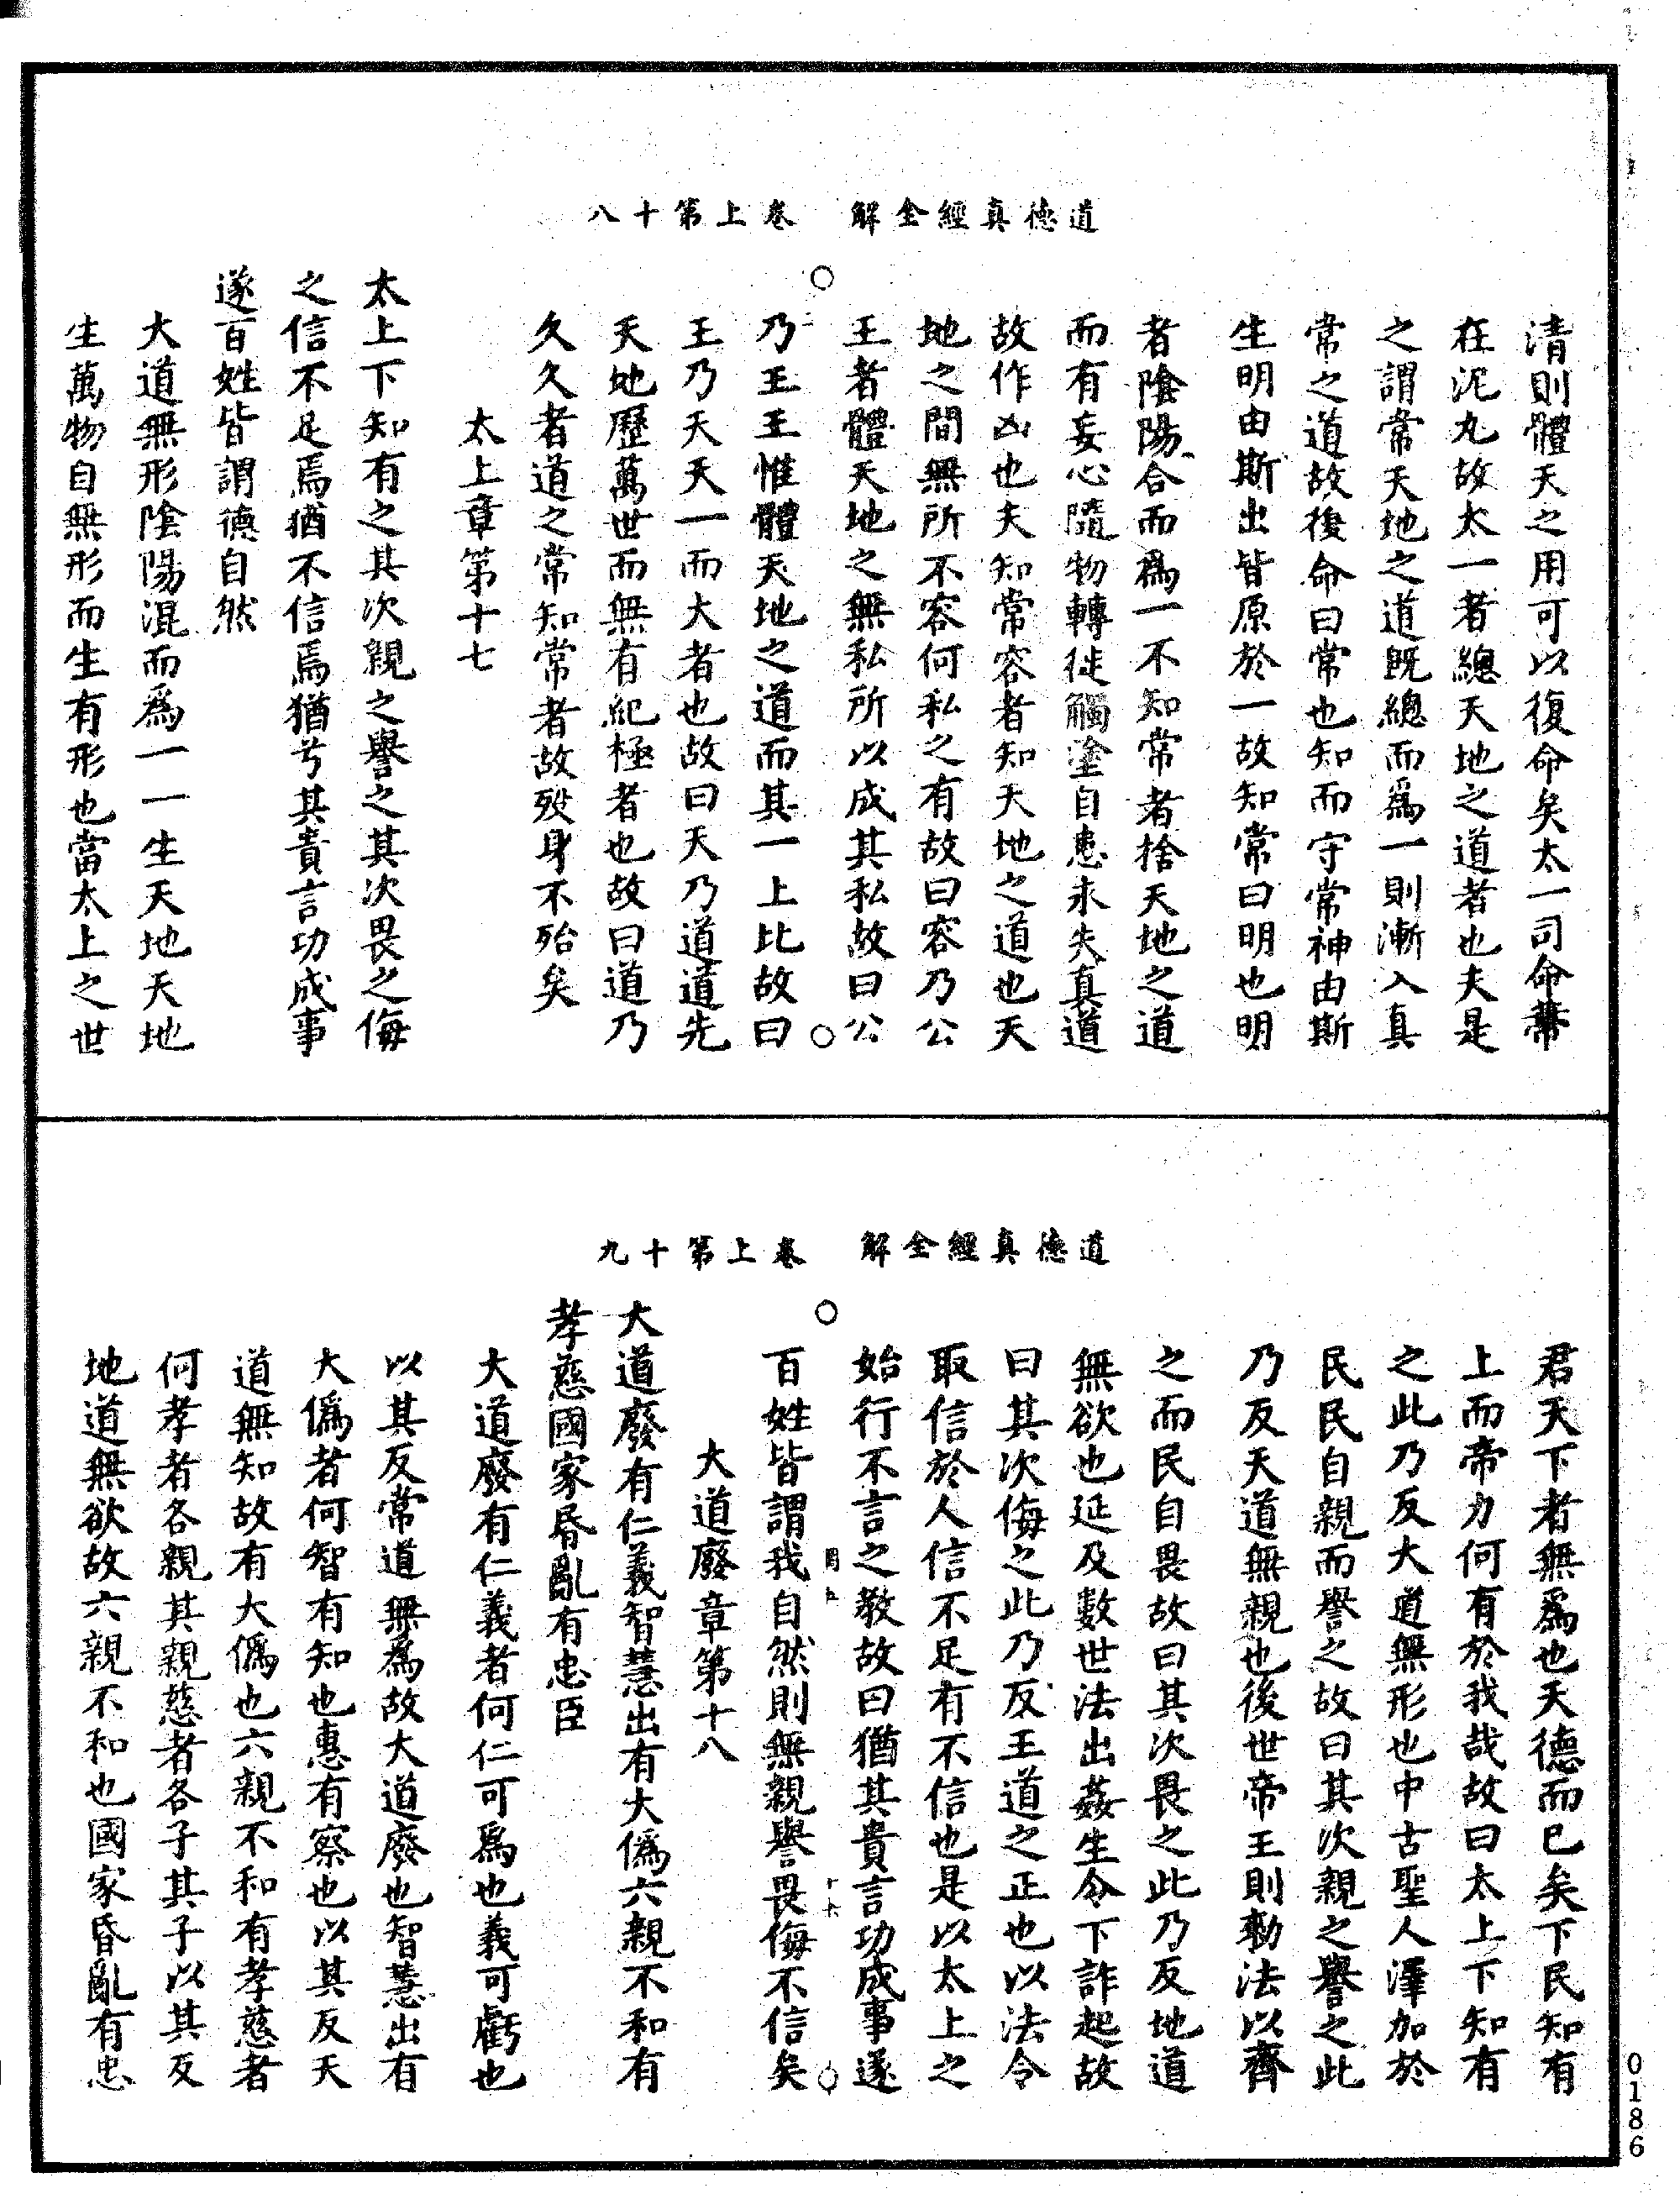 道德真經全解　卷上第十八
清則體天之用可以復命矣太一司命常
在泥丸故太一者總天地之道者也夫是
之謂常天地之道既總而爲一則漸入真
常之道故後命曰常也知而守常常神由斯
生明由斯出皆原於一故知常曰明也明
者陰陽合而爲一不知常者捨天地之道
而有妄心隨物轉徙觸塗自患永失真道
故作凶也夫知常容者知天地之道也天
地之間無所不容何私之有故曰容乃公
王者體天地之無私所以成其私故曰公
乃王王惟體天地之道而其一上比故曰
王乃天天一而大者也故曰天乃道道先
天地歷萬世而無有紀極者也故曰道乃
久久者道之常知常者故殁身不殆矣
太上章第十七
太上下知有之其次親之譽之其次畏之侮
之信不足焉猶不信焉猶兮其貴言功成事
遂百姓皆謂德自然
大道無形陰陽混而爲一一生天地天地
生萬物自無形而生有形也當太上之世
道德真經全解　卷上第十九
君天下者無爲也天德而已矣下民知有
上而帝力何有於我哉故曰太上下知有
之此乃反大道無形也中古聖人澤加於
民民自親而譽之故曰其次親之譽之此
乃反天道無親也後世帝王則勑法以齊
之而民自畏故曰其次畏之此乃反地道
無欲也延及數世法出姦生令下詐起故
曰其次侮之此乃反王道之正也以法令
取信於人信不足有不信也是以太上之
始行不言之教故曰猶其貴言功成事遂
百姓皆謂我自然則無親譽畏侮不信矣
大道廢章第十八
大道廢有仁義智慧出有大僞六親不和有
孝慈國家昏亂有忠臣
大道廢有仁義者何仁可爲也義可虧也
以其反常道無爲故大道廢也智慧出有
大僞者何智有知也惠有察也以其反天
道無知故有大僞也六親不和有孝慈者
何孝者各親其親慈者各子其子以其反
地道無欲故六親不和也國家昏亂有忠
0186